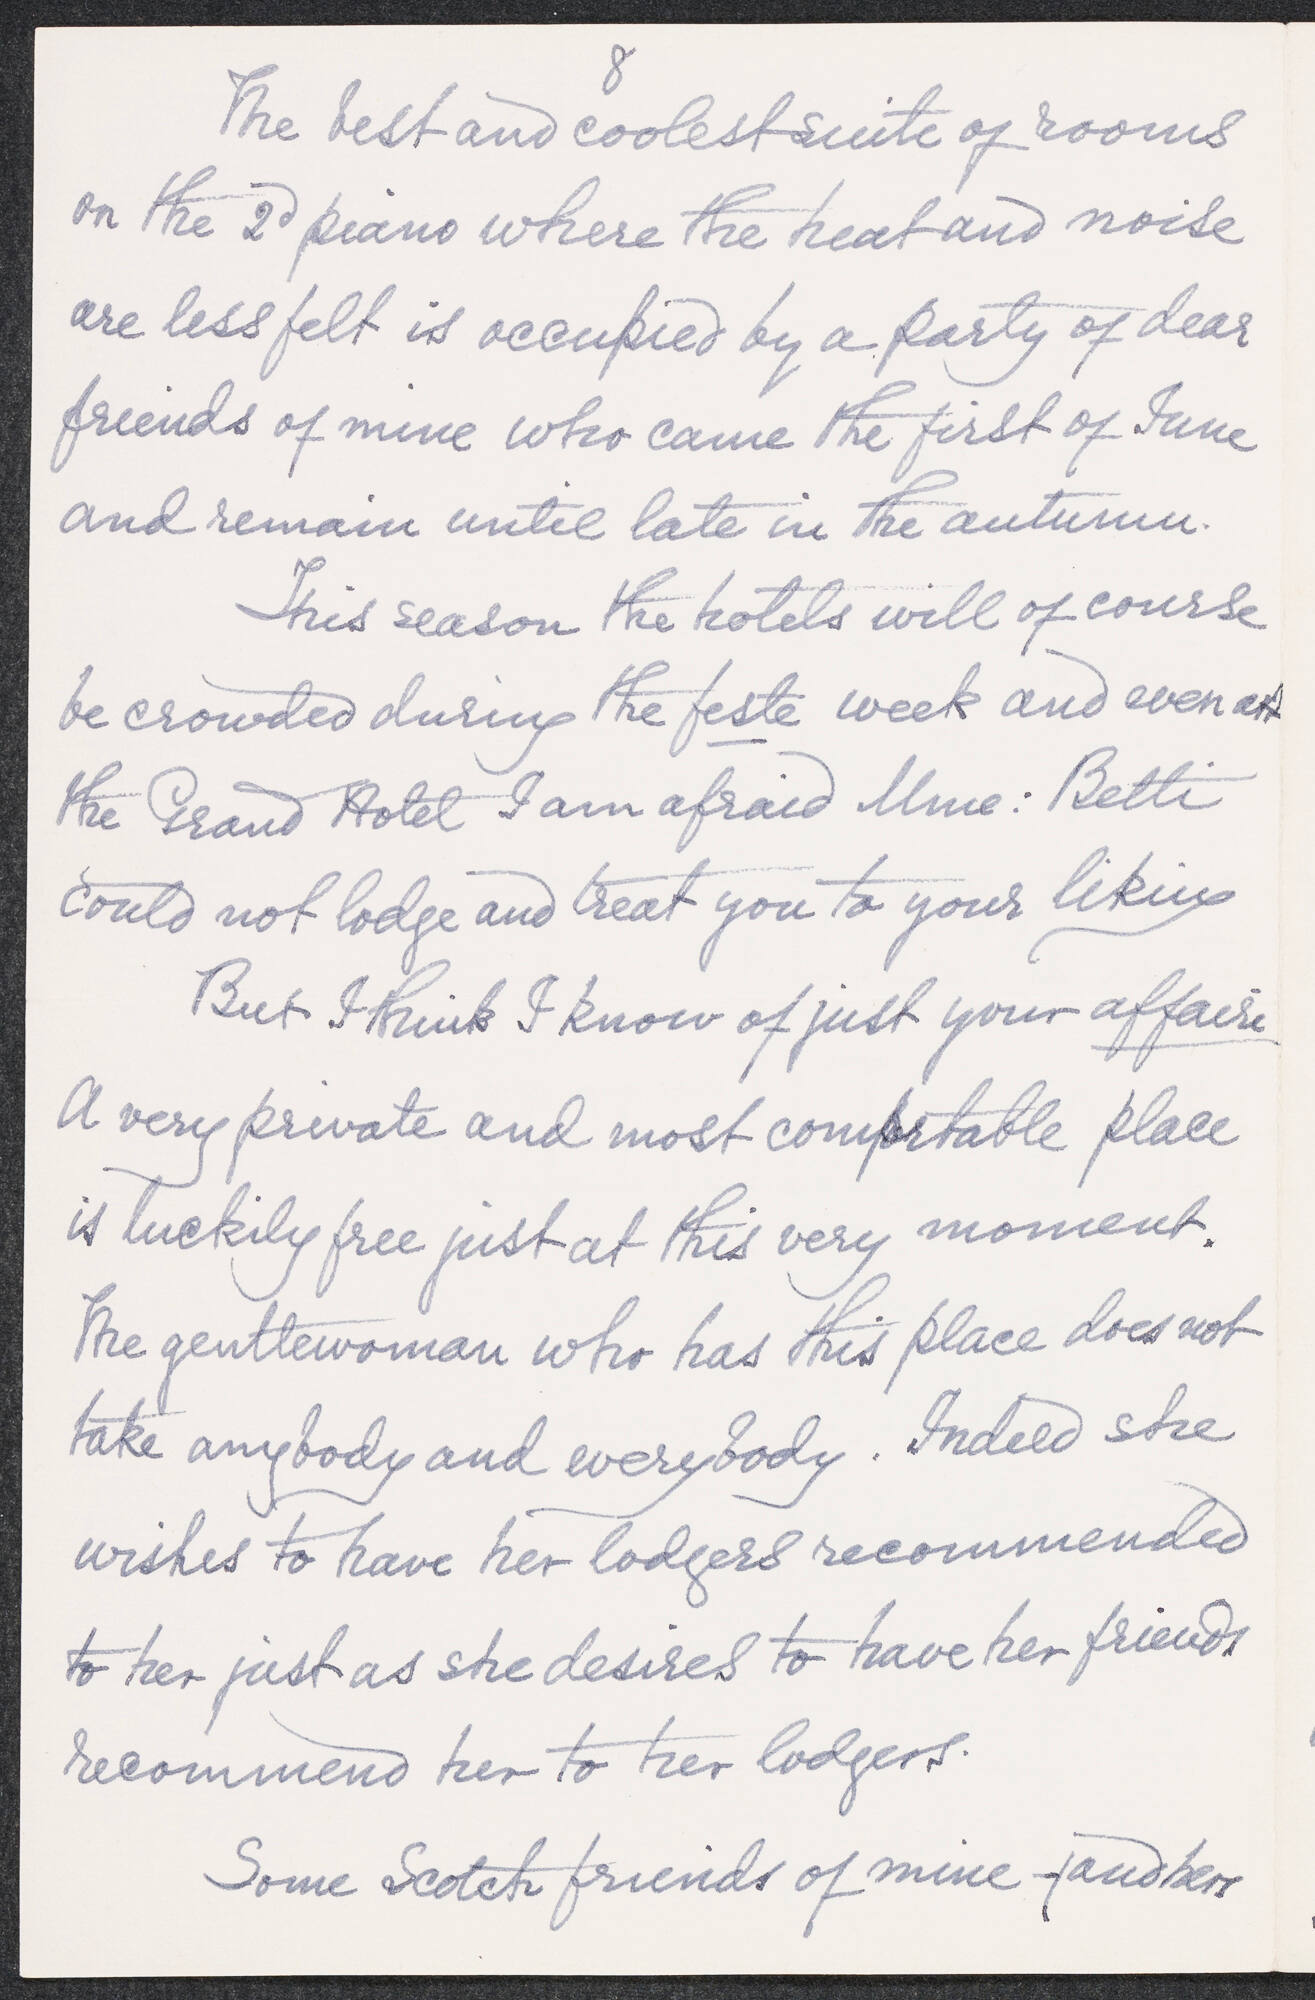 8
The best and coolest suite of rooms
on the 2d piano where the heat and noise
are less felt is occupied by a party of dear
friends of mine who came the first of June
and remain until late in the autumn.
This season the hotels will of course
be crowded during the feste week and even at
the Grand Hotel I am afraid Mme: Betti
could not lodge and treat you to your liking
But I think I know of just your affaire
A very private and most comfortable place
is luckily free just at this very moment.
The gentlewoman who has this place does not
take anybody and everybody. Indeed she
wishes to have her lodgers recommended
to her just as she desires to have her friends
recommend her to her lodgers.
Some Scotch friends of mine - (and hers